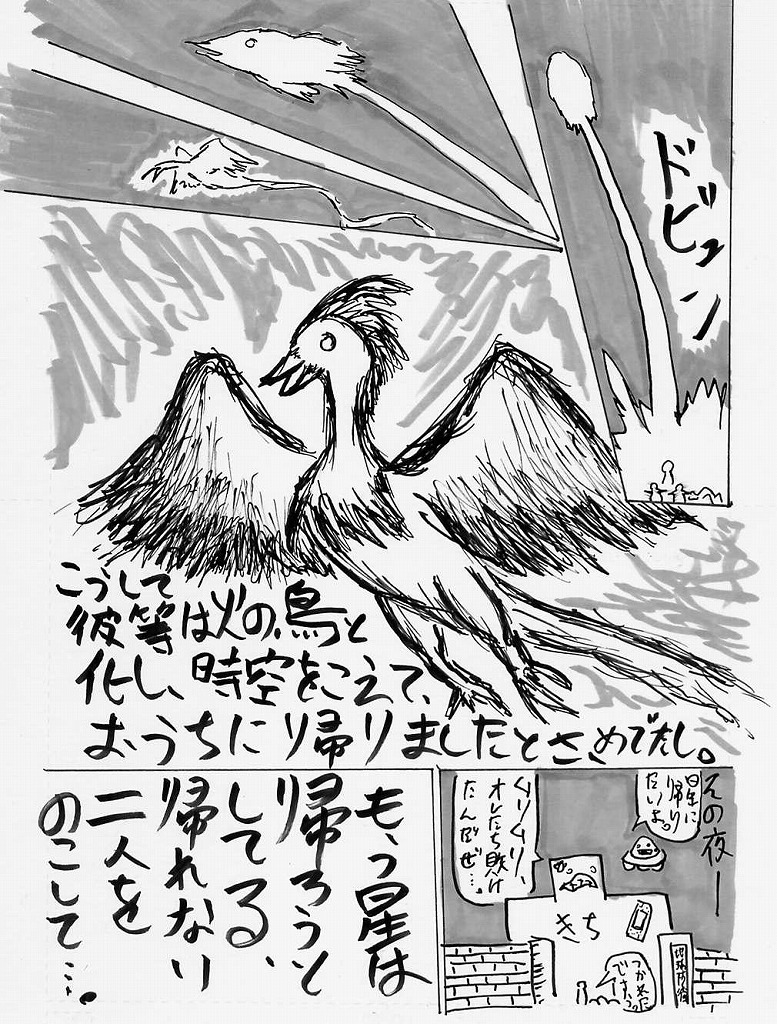 ドビュン
こうして
彼等は火の鳥と
化し、時空をこえて、
おうちに帰りましたとさめでたし。
その夜ー
星に
帰り
たいよ。
ムリムリ、
オレたち敗け
たんだぜ…。
きち
つかれた
もう星は
帰ろうと
してる、
帰れない
二人を
のこして…。